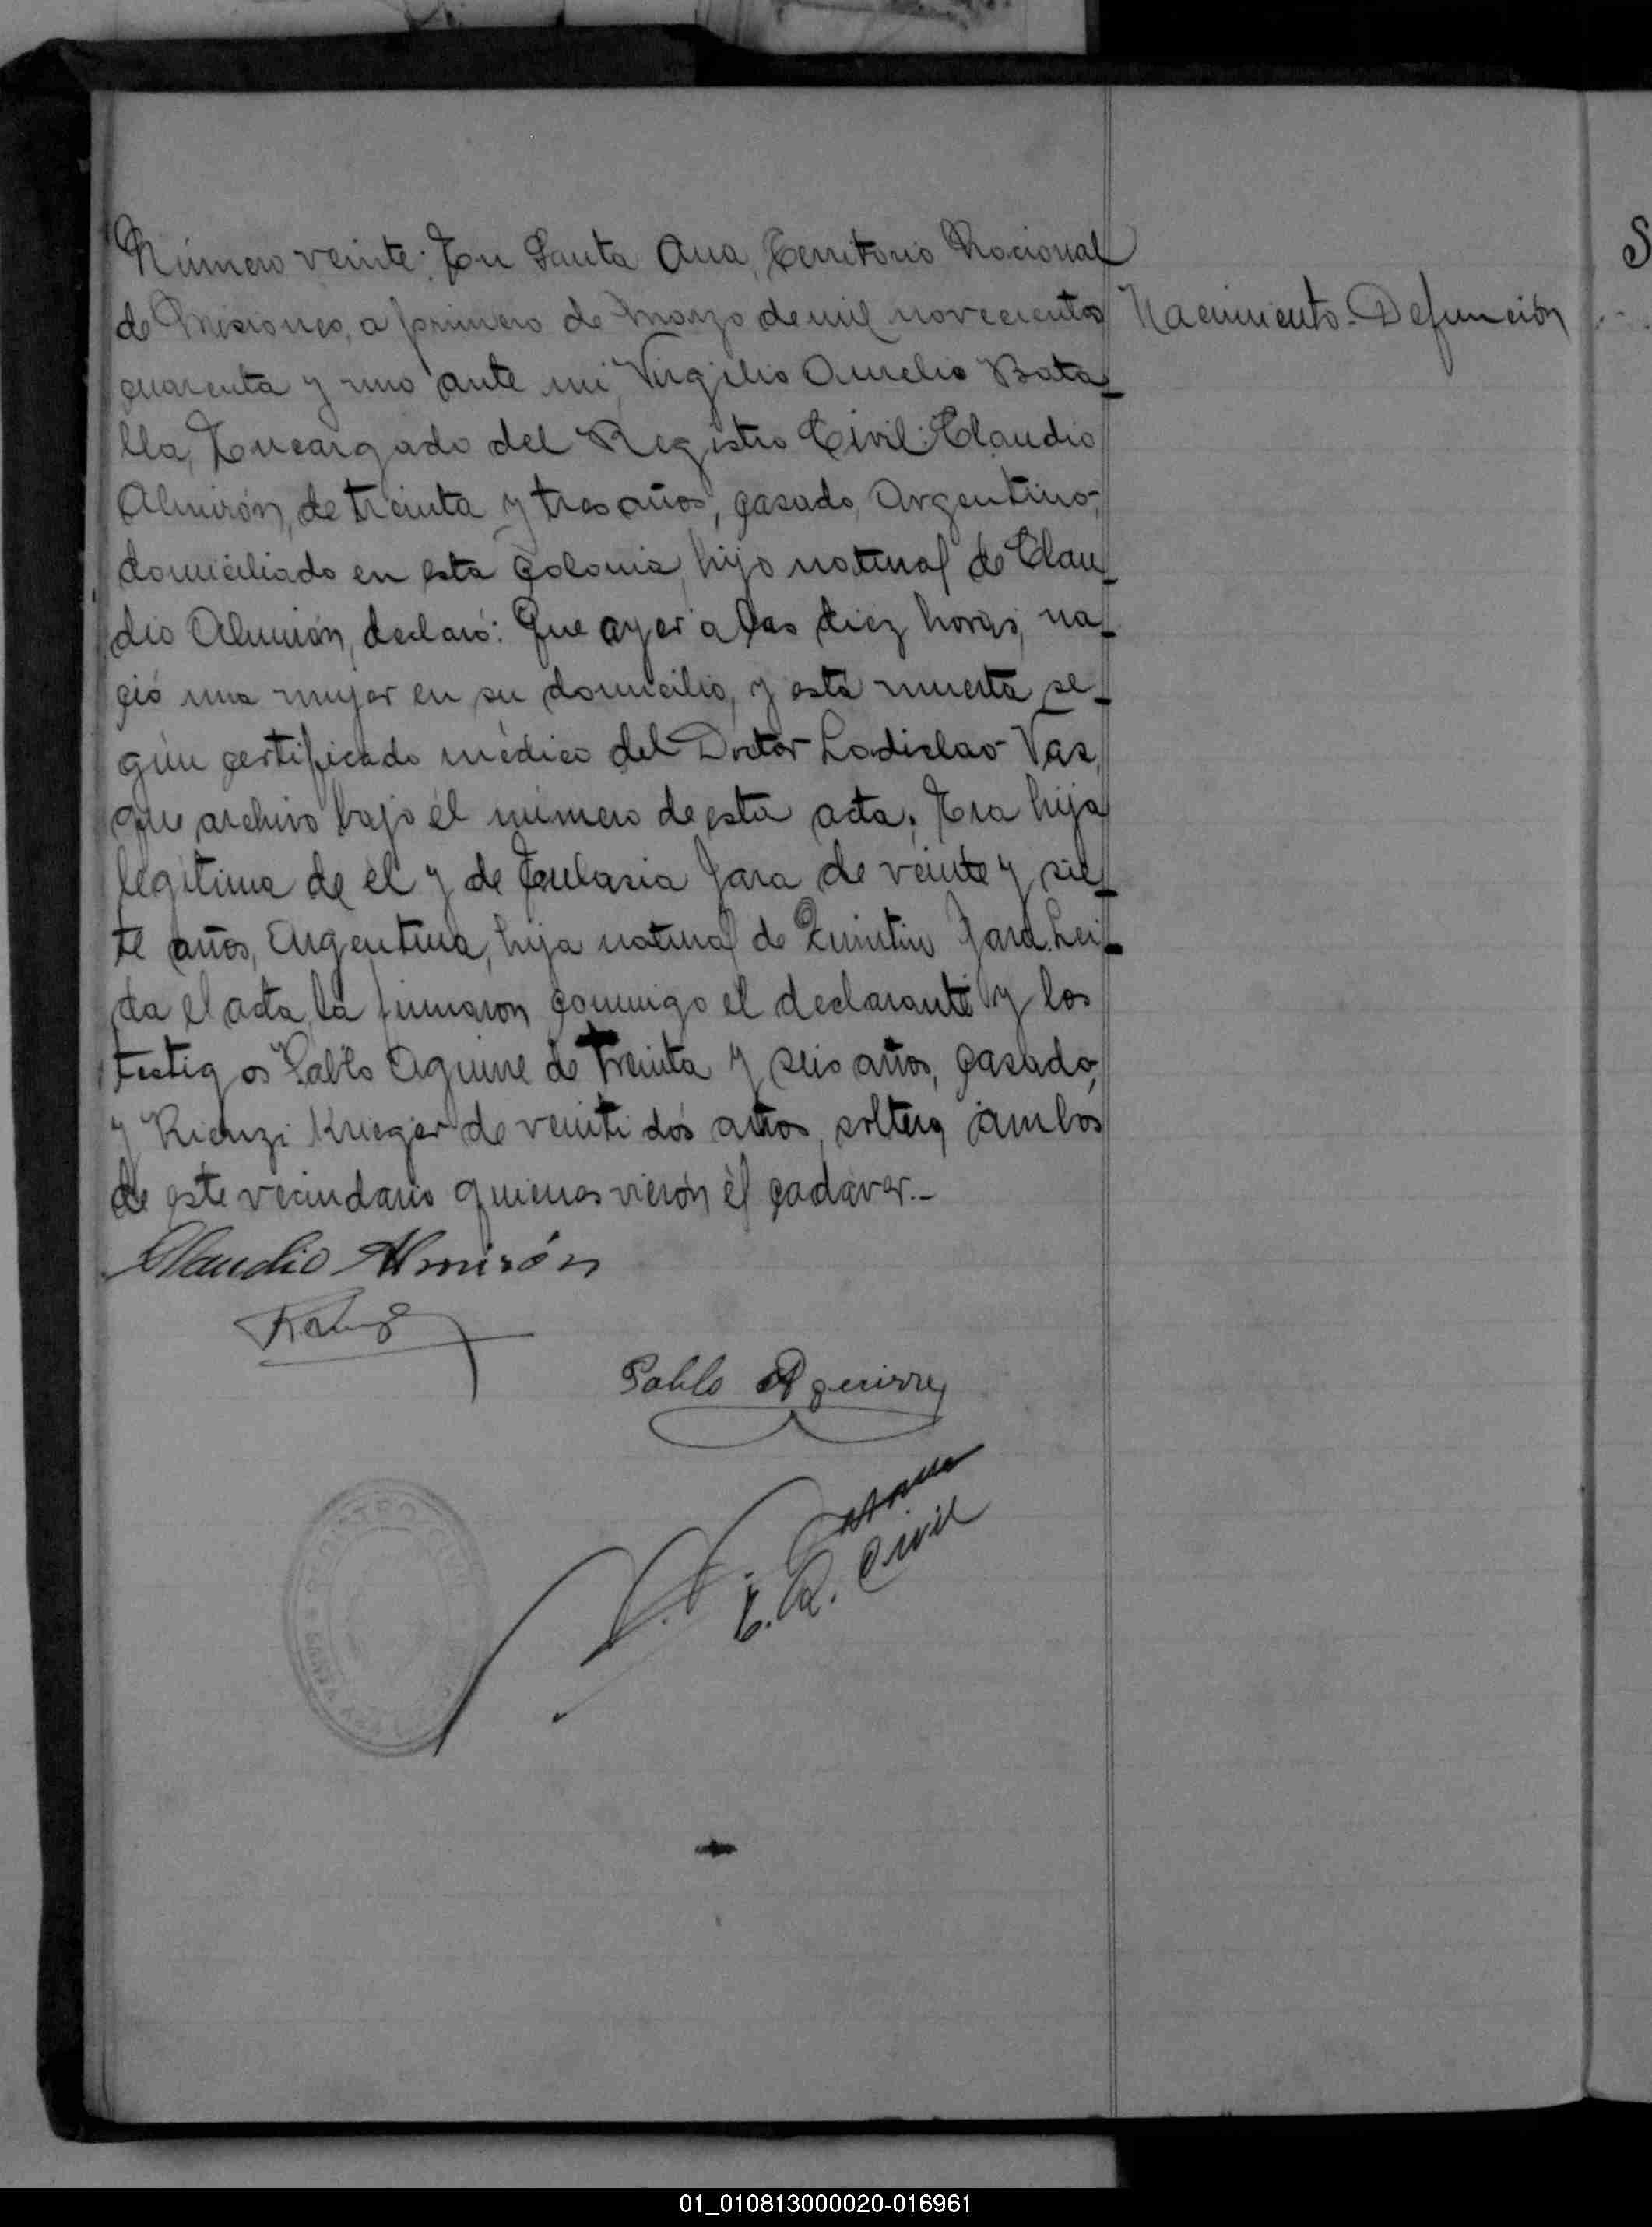 Número veinte: En Santa Ana, Territorio Nacional
de Misiones, a primero de Marzo de mil novecientos
cuarenta y uno ante mi, Virgilio Aurelio Bata-
lla, Encargado del Registro Civil: Claudio
Almirón, de treinta y tres años, casado, Argentino,
domiciliado en esta Colonia, hijo natural de Clau-
dio Almirón, declaró: Que ayer a las diez horas, na-
ció una mujer en su domicilio, y está muerta se-
gún certificado médico del Doctor Ladislao Vaz,
que archivo bajo el número de esta acta. Era hija
legítima de él y de Eulasia Jara de veinte y sie-
te años, Argentina, hija natural de Quintin Jara. Lei-
da el acta, la firmaron conmigo el declarante y los
testigos Pablo Aguirre de treinta y seis años, casado,
y Rienzi Krieger de veintidós años, soltero, ambos
de este vecindario quienes vierón el cadáver.-
Nacimiento-Defunción
Claudio Almirón
Pablo Aguirre
E. R. Civil
REGISTRO CIVIL
01_010813000020-016961